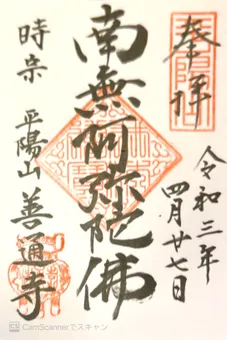 奉拝
令和三年
四月廿七日
南無阿弥陀佛
時宗 平陽山 善通寺
CamScannerでスキャン